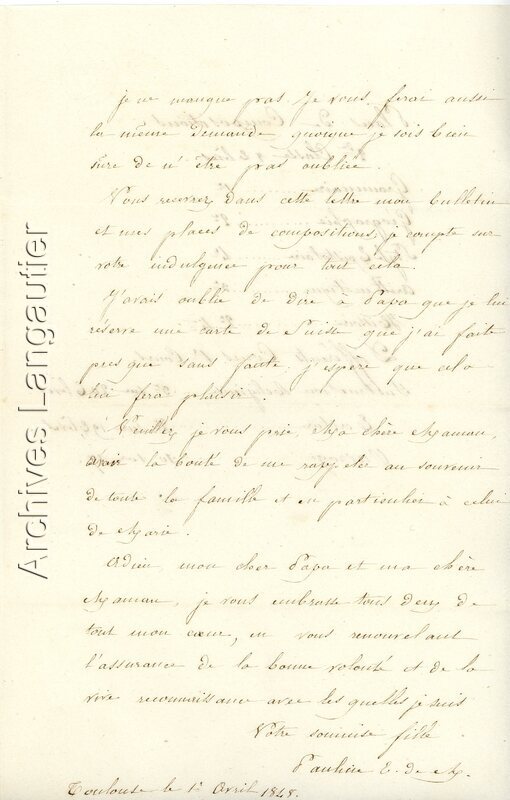 je ne manque pas. Je vous ferai aussi
la même demande, quoique je sois bien
sure de n'être pas oubliée.
Vous recevrez dans cette lettre mon bulletin
et mes places de compositions, je compte sur
votre indulgence pour tout cela.
J'avais oublié de dire à Papa que je lui
réserve une carte de Suisse que j'ai faite
presque sans faute, j'espère que cela
lui fera plaisir.
Veuillez je vous prie Ma chère Maman,
avoir la bonté de me rappeler au souvenir
de toute la famille et en particulier à celui
de Marie.
Adieu, mon cher Papa et ma chère
Maman, je vous embrasse tous deux de
tout mon cœur, en vous renouvelant
l'assurance de la bonne volonté et de la
vive reconnaissance avec lesquelles je suis
Votre soumise fille
Pauline E. de M.
Toulouse le 1er Avril 1848.
Archives Langautier